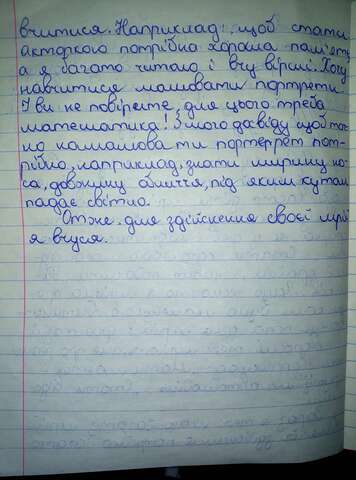 вчитися. Наприклад: щоб стати
акторкою потрібна хороша пам'ять,
а я багато читаю і вчу вірші. Хочу
навчитися малювати портрети.
І ви не повірите, для цього треба
математика! З мого досвіду щоб точ-
но намалювати портеррет пот-
рібно, наприклад, знати ширину но-
са, довжину обличчя, під яким кутом
падає світло.
Отже для здійснення своєї мрії
я вчуся.